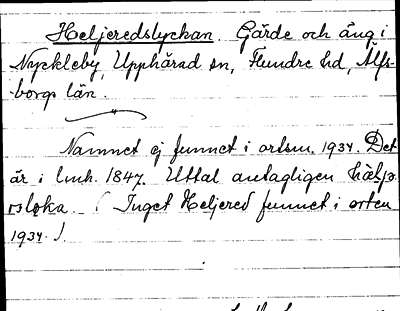 Heljeredslyckan. Gärde och äng i
Nyckleby, Upphärad sn, Flundre hd, Älfs-
borgs län.
Namnet ej funnet i ortsn. 1934. Det
är i linh. 1847. Uttal antagligen hæljo
rsloka. ( Inget Heljered funnet i orten
1934. )